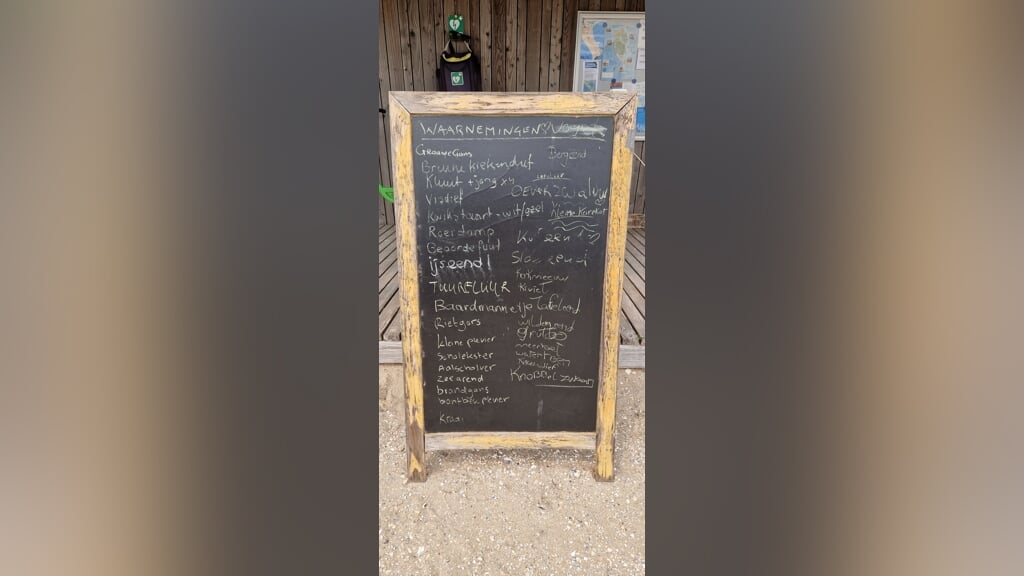 WAARNEMINGEN
Grauwe Gans
Bruine kiekendief
Kluut + jong
Visdief
Kwikstaart - wit/geel
Roerdomp
Geoorde fuut
ijseend!
TUURELUUR
Baardmannetje
Rietgans
kleine plevier
Scholekster
Aalscholver
zeearend
brandgans
bontbekplevier
Kraai
Bergeend
OEVERZWALUW
Kleine Karekiet
kokmeeuw
Kiviet
Tafeleend
wilde eend
grutto
meerkoet
waterhoen
Knobbelzwaan